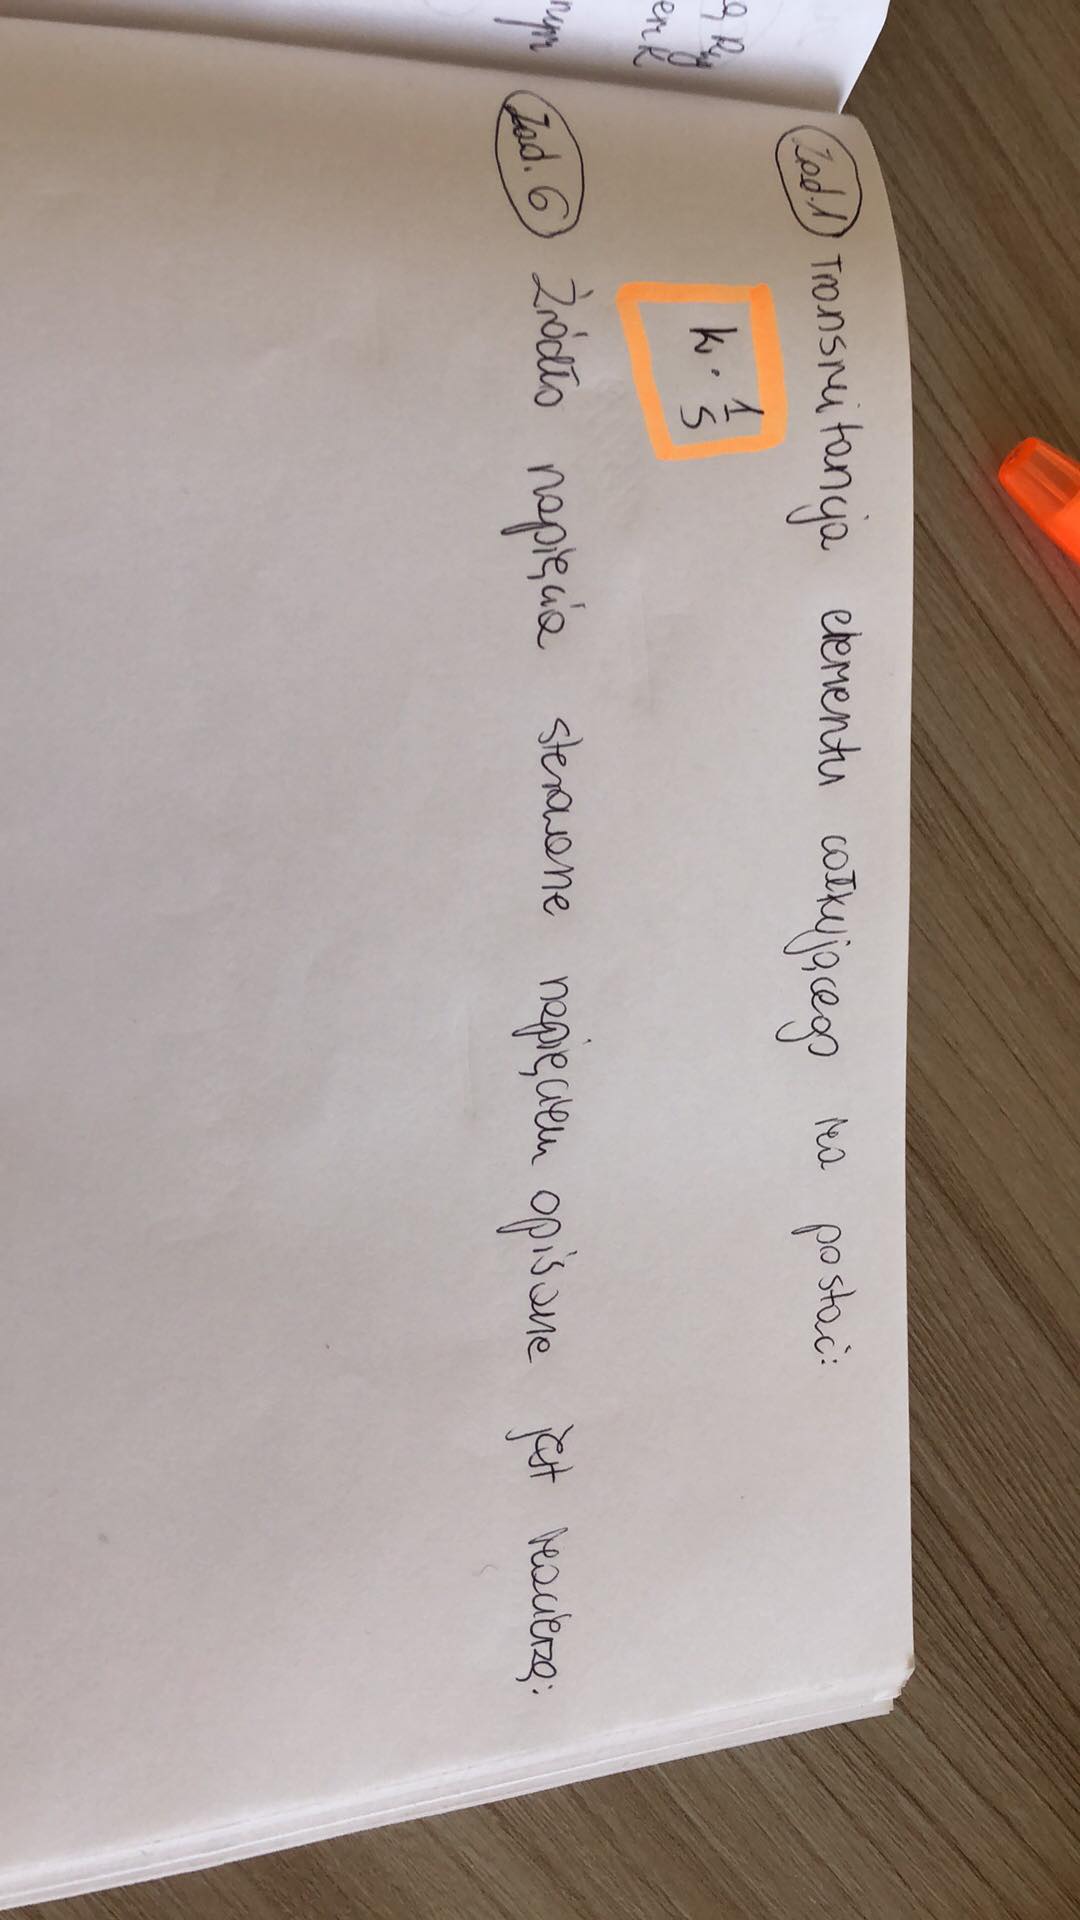 Zad.1 Transmitancja elementu całkującego ma postać:
k · 1/s
Zad. 6 Źródło napięcia sterowane napięciem opisane jest macierzą: